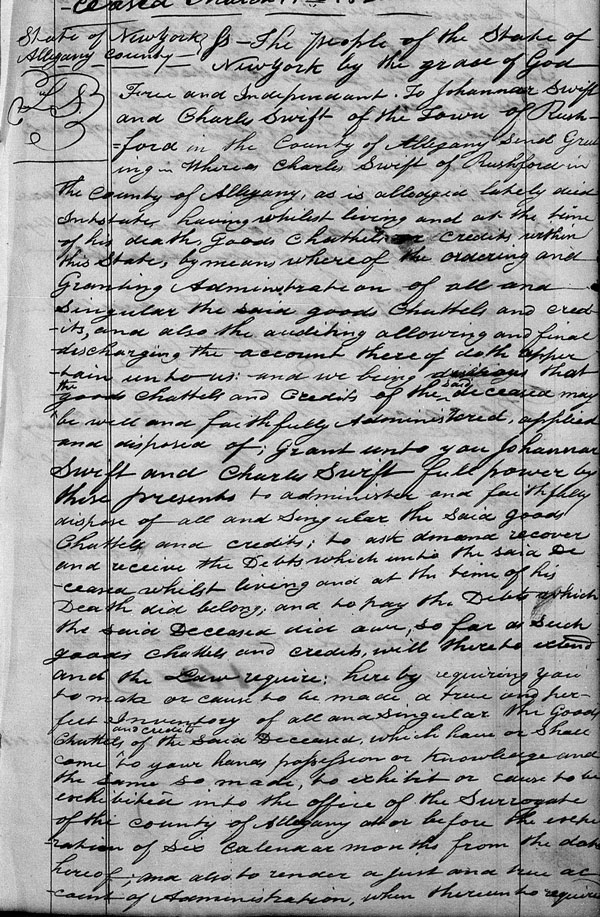 -ceased Church
State of New York
Allegany County
} ss - The people of the State of
New York by the grace of God
L S
Free and Independant. To Johannar Swift
and Charles Swift of the Town of Rush-
=ford in the County of Allegany Send Greet
ing - Whereas Charles Swift of Rushford in
the County of Allegany, as is alledged lately died
Intstate, having whilst living and at the time
of his death, Goods Chattels or credits within
this State, by means whereof the ordering and
Granting Administration of all and
Singular the said goods Chattels and cred-
-its, and also the auditing allowing and final
discharging the account there of doth apper
-tain unto us: and we being desirous that
the goods Chattels and Credits of the said deceased may
be well and faithfully Administered, applied
and disposed of; Grant unto you Johannar
Swift and Charles Swift full power by
these presents to administer and faithfully
dispose of all and Singular the Said goods
Chattels and credits; to ask dmand recover
and receive the Debts which unto the said De
-ceased, whilst living and at the time of his
Death did belong; and to pay the Debts which
the said Deceased did owe, so far as such
goods Chattels and credits, will thereto extend
and the Law require: hereby requiring you
to make or cause to be made a true and per-
fect Inventory of all and Singular the Goods
Chattels and credits of the Said Deceased, which have or Shall
come to your hands possession or Knowledge and
the same so made, to exhibit or cause to be
exhibited into the office of the Surrogate
of the County of Allegany at or before the expe
ration of Six Calendar months from the date
hereof; and also to render a just and true ac
count of Administration, when thereunto require